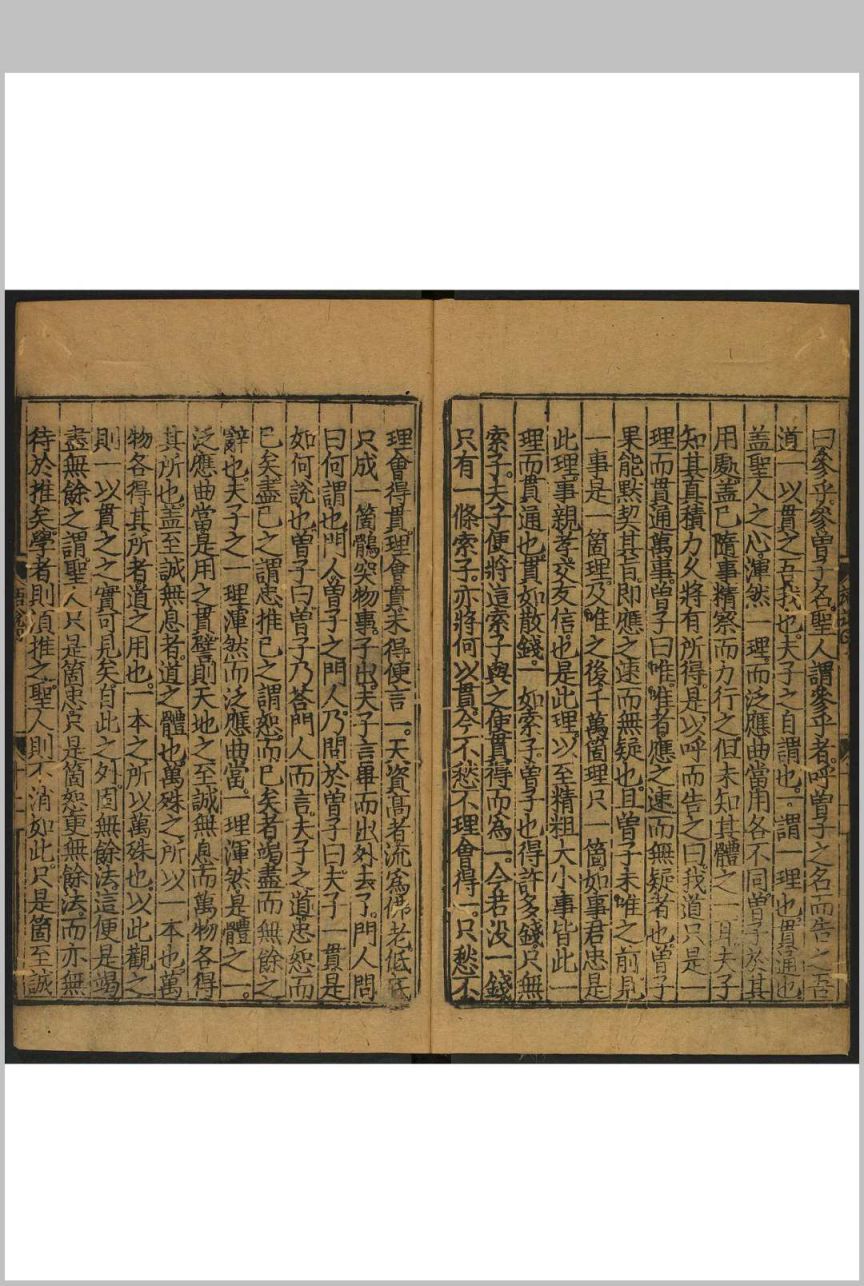 曰參乎參曽子名聖人謂參乎者呼曽子之名而告之吾
道一以貫之吾我也夫子之自謂也一謂一理也貫通也
盖聖人之心渾然一理而泛應曲當用各不同曽子於其
用處盖已隨事精察而力行之但未知其體之一耳夫子
知其真積力久將有所得是以呼而告之曰我道只是一
理而貫通萬事曽子曰唯唯者應之速而無疑者也曽子
果能默契其旨即應之速而無疑也且曽子未唯之前見
一事是一箇理及唯之後千萬箇理只一箇如事君忠是
此理事親孝交友信也是此理以至精粗大小事皆此一
理而貫通也貫如散錢一如索子曽子也得許多錢只無
索子夫子便將這索子與之使貫得而爲一今若没一錢
只有一條索子亦將何以貫今不愁不理會得一只愁不
理會得貫理會貫未得便言一天資髙者流爲佛老低底
只成一箇鶻突物事子出夫子言畢而出外去了門人問
曰何謂也門人曽子之門人乃問於曽子曰夫子一貫是
如何説也曽子曰曽子乃荅門人而言夫子之道忠恕而
已矣盡已之謂忠推已之謂恕而已矣者竭盡而無餘之
辭也夫子之一理渾然而泛應曲當一理渾然是體之一
泛應曲當是用之貫譬則天地之至誠無息而萬物各得
其所也盖至誠無息者道之體也萬殊之所以一本也萬
物各得其所者道之用也一本之所以萬殊也以此觀之
則一以貫之之實可見矣自此之外固無餘法這便是竭
盡無餘之謂聖人只是箇忠只是箇恕更無餘法而亦無
待於推矣學者則須推之聖人則不消如此只是箇至誠